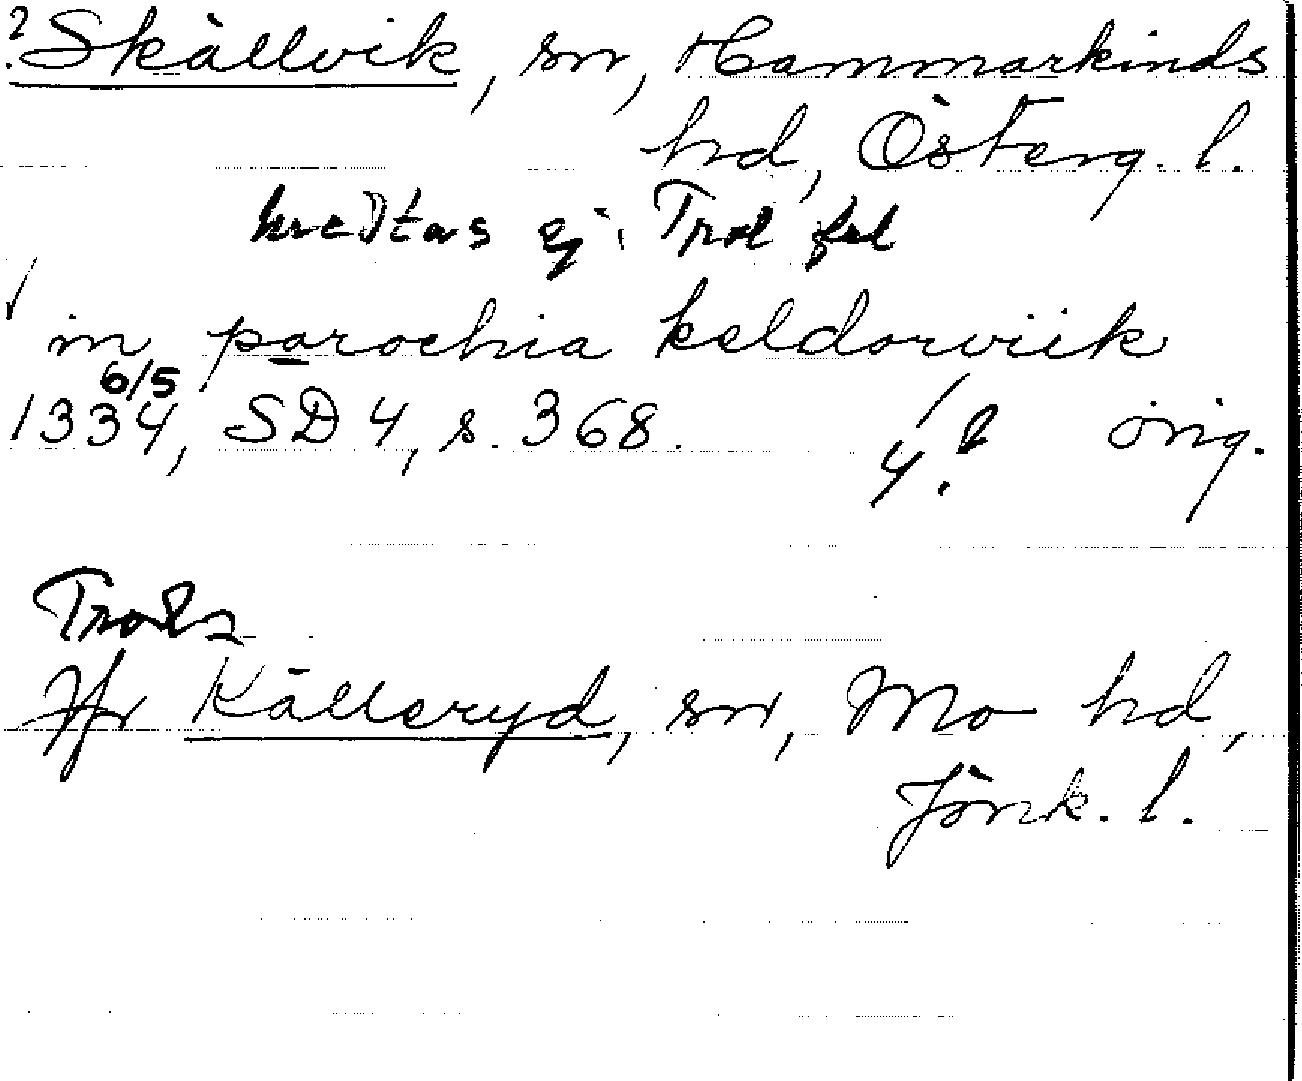 ? Skällvik, sn, Hammarkinds
hd, Österg. l.
medtas ej. Trol fel
in parochia keldorwiik
6/5
1334, SD 4, s. 368. orig.
Trol
Jfr Källeryd, sn, Mo hd,
Jönk. l.